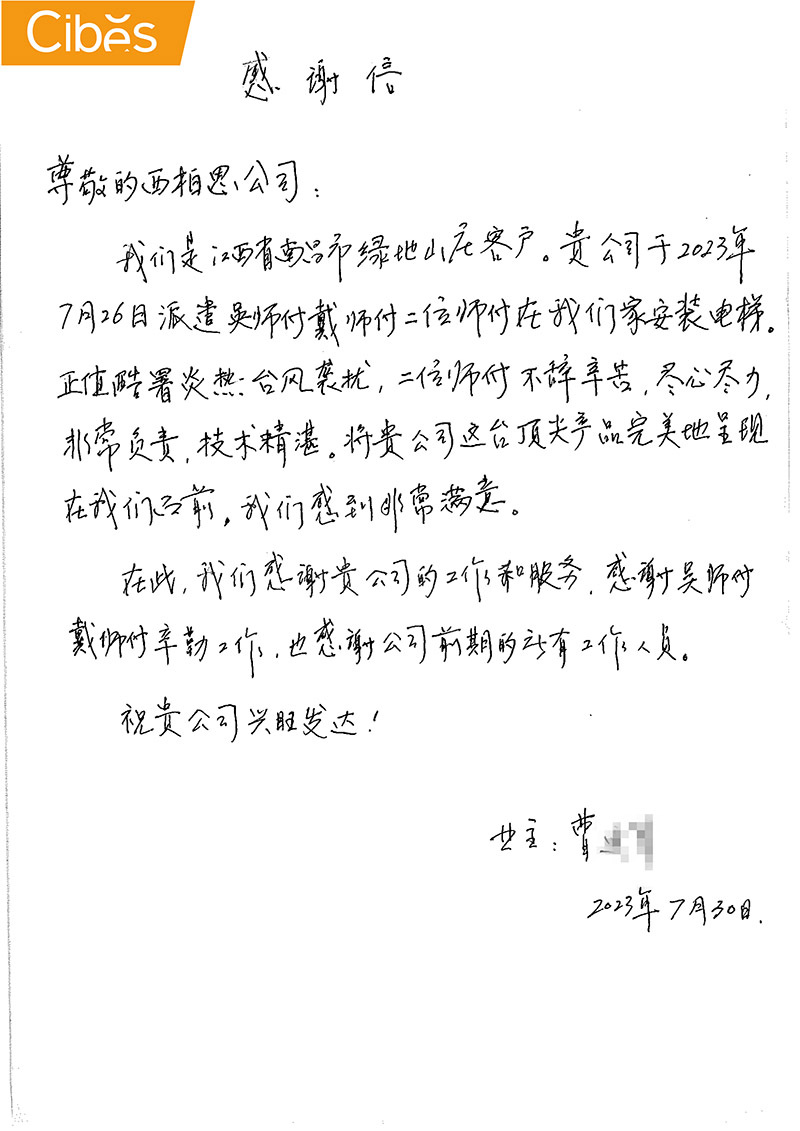 Cibes
感谢信
尊敬的西柏思公司：
我们是江西省南昌市绿地山庄客户。贵公司于2023年
7月26日派遣吴师付戴师付二位师付在我们家安装电梯。
正值酷署炎热，台风袭扰，二位师付不辞辛苦，尽心尽力，
非常负责，技术精湛。将贵公司这台顶尖产品完美地呈现
在我们面前，我们感到非常满意。
在此，我们感谢贵公司的工作和服务，感谢吴师付
戴师付辛勤工作，也感谢公司前期的所有工作人员。
祝贵公司兴旺发达！
业主：曹
2023年7月30日.